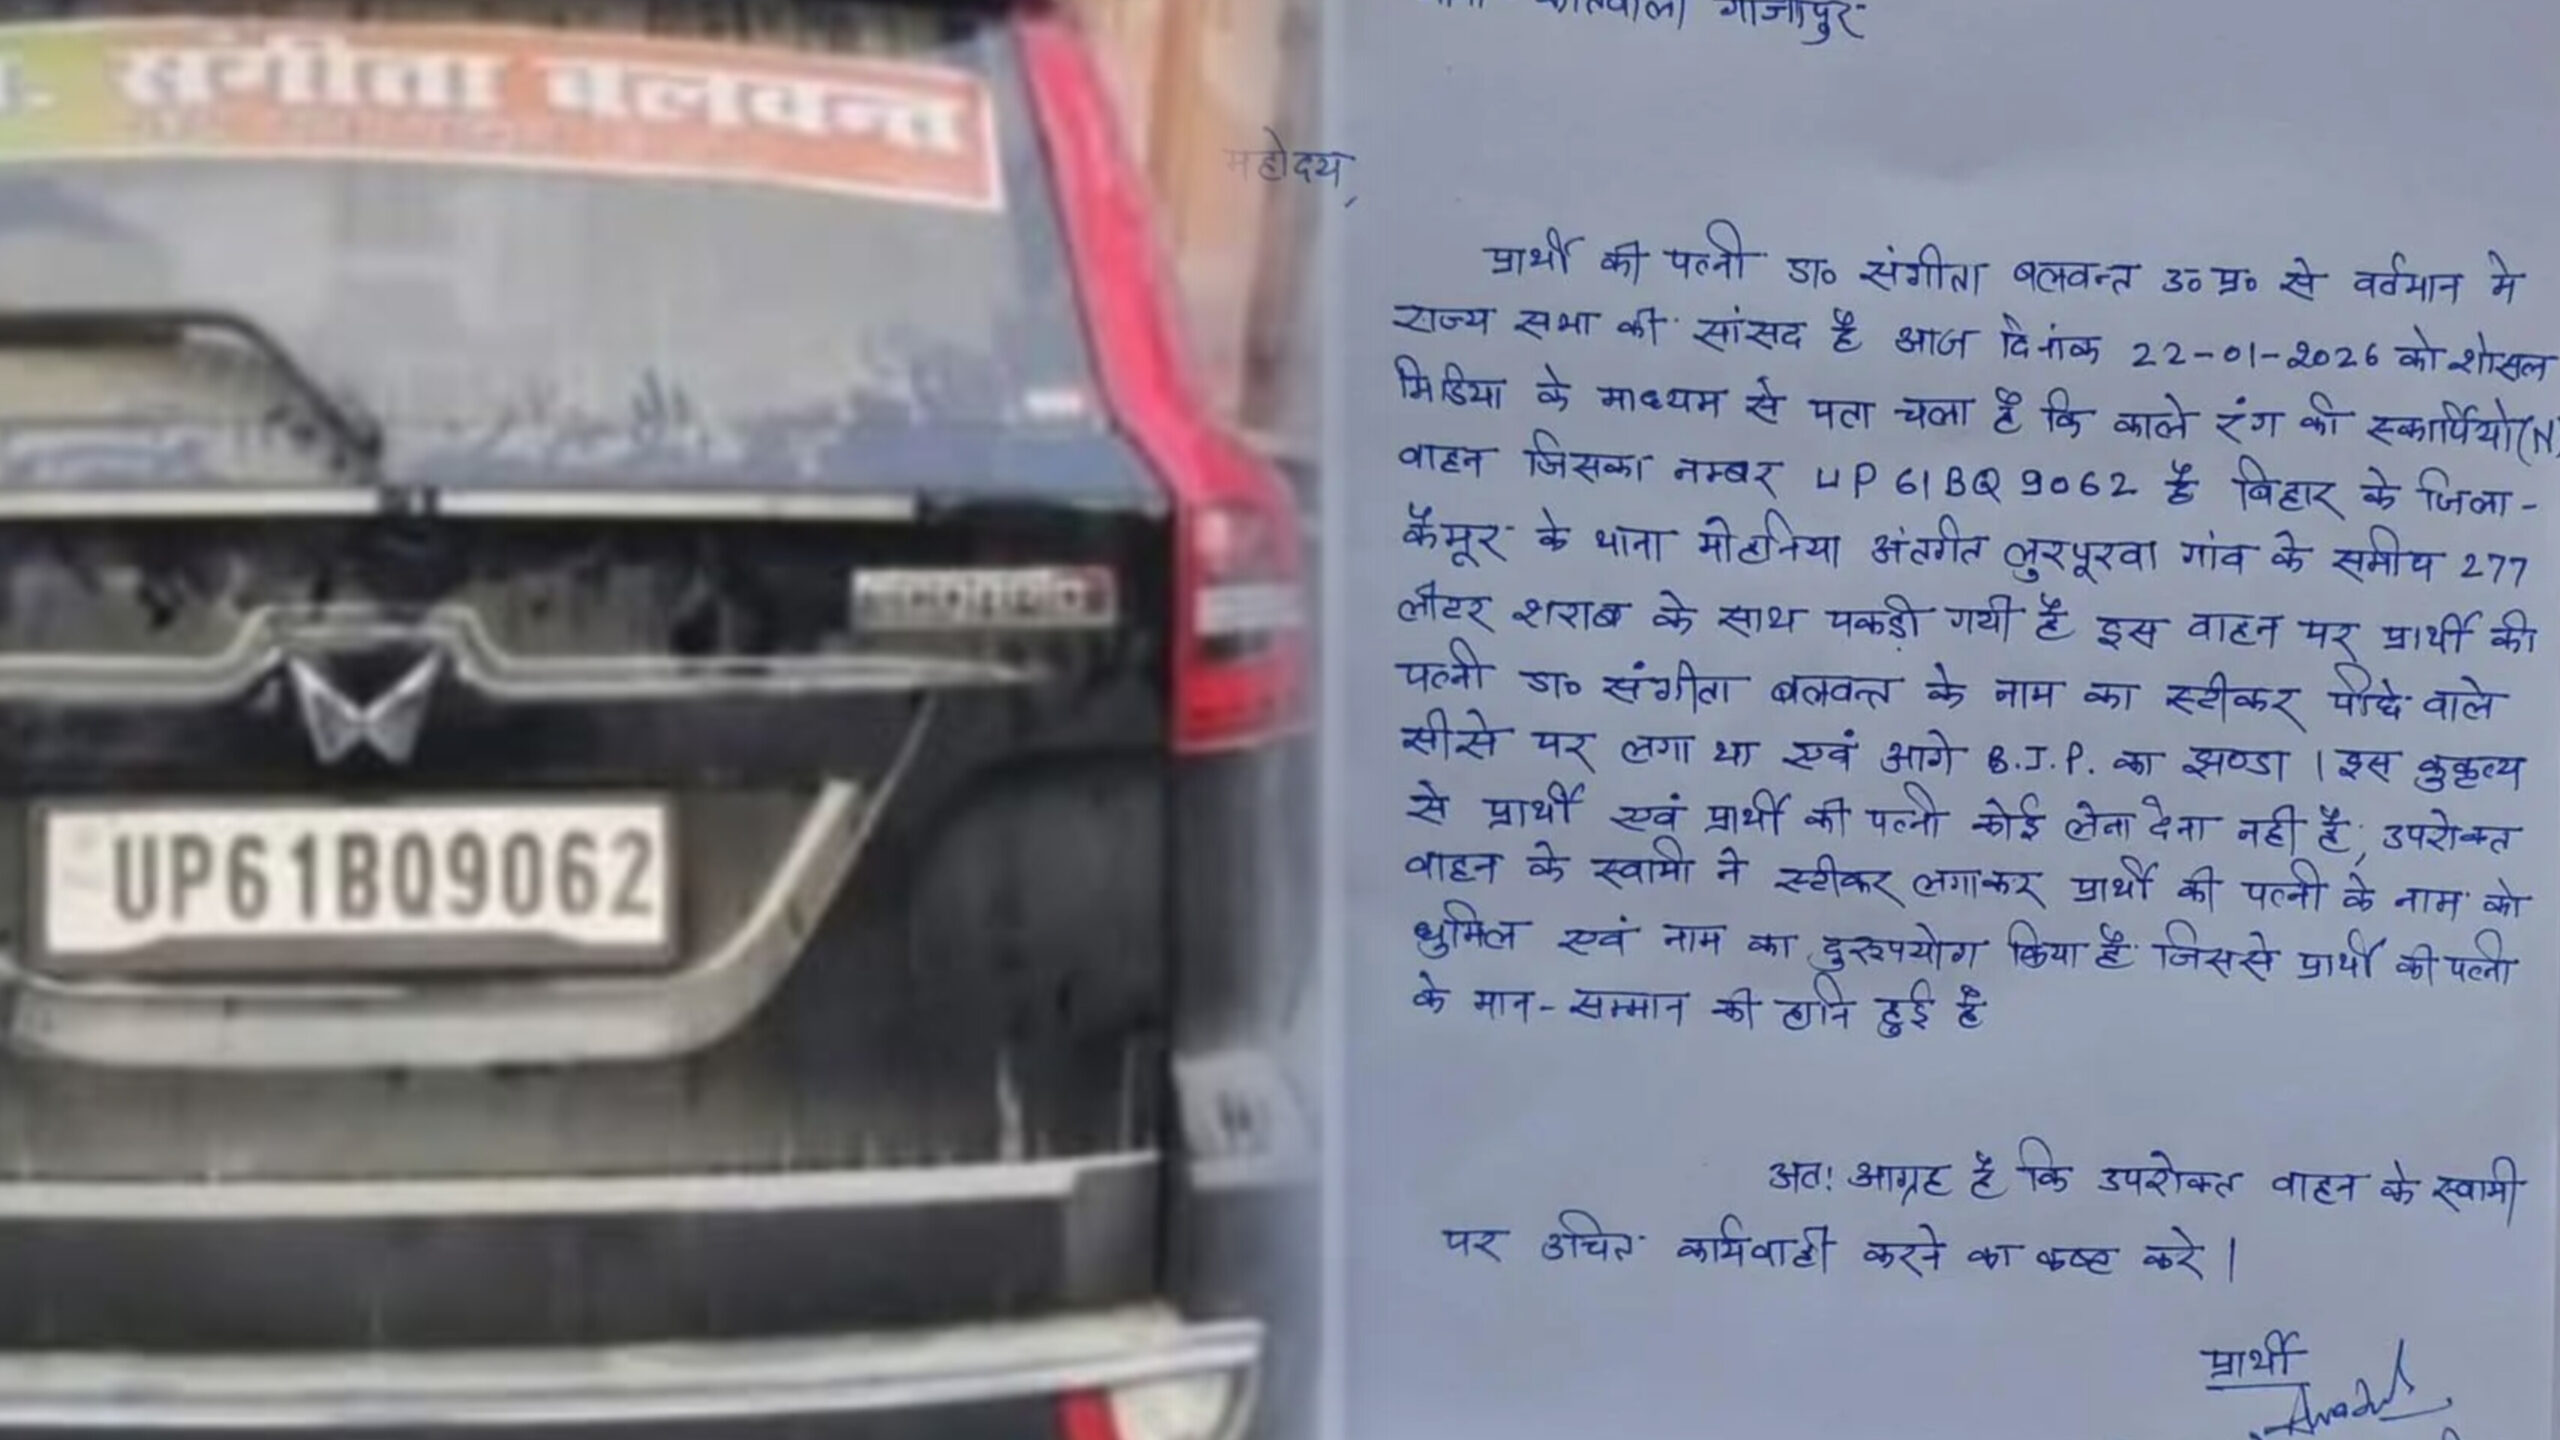 संगीता बलवन्त
UP61BQ9062
कोतवाली गाजीपुर
महोदय,
प्रार्थी की पत्नी डा० संगीता बलवन्त उ० प्र० से वर्तमान मे
राज्य सभा की सांसद है आज दिनांक 22-01-2026 को शोसल
मिडिया के माध्यम से पता चला है कि काले रंग की स्कार्पियो (N)
वाहन जिसका नम्बर UP 61 BQ 9062 है बिहार के जिला-
कैमूर के थाना मोहनिया अंतर्गत लुरपूरवा गांव के समीप 277
लीटर शराब के साथ पकड़ी गयी है इस वाहन पर प्रार्थी की
पत्नी डा० संगीता बलवन्त के नाम का स्टीकर पीछे वाले
सीसे पर लगा था एवं आगे B.J.P. का झण्डा । इस कुकृत्य
से प्रार्थी एवं प्रार्थी की पत्नी कोई लेना देना नही है, उपरोक्त
वाहन के स्वामी ने स्टीकर लगाकर प्रार्थी की पत्नी के नाम को
धुमिल एवं नाम का दुरुपयोग किया है जिससे प्रार्थी की पत्नी
के मान-सम्मान की हानि हुई है
अतः आग्रह है कि उपरोक्त वाहन के स्वामी
पर उचित कार्यवाही करने का कष्ट करे ।
प्रार्थी